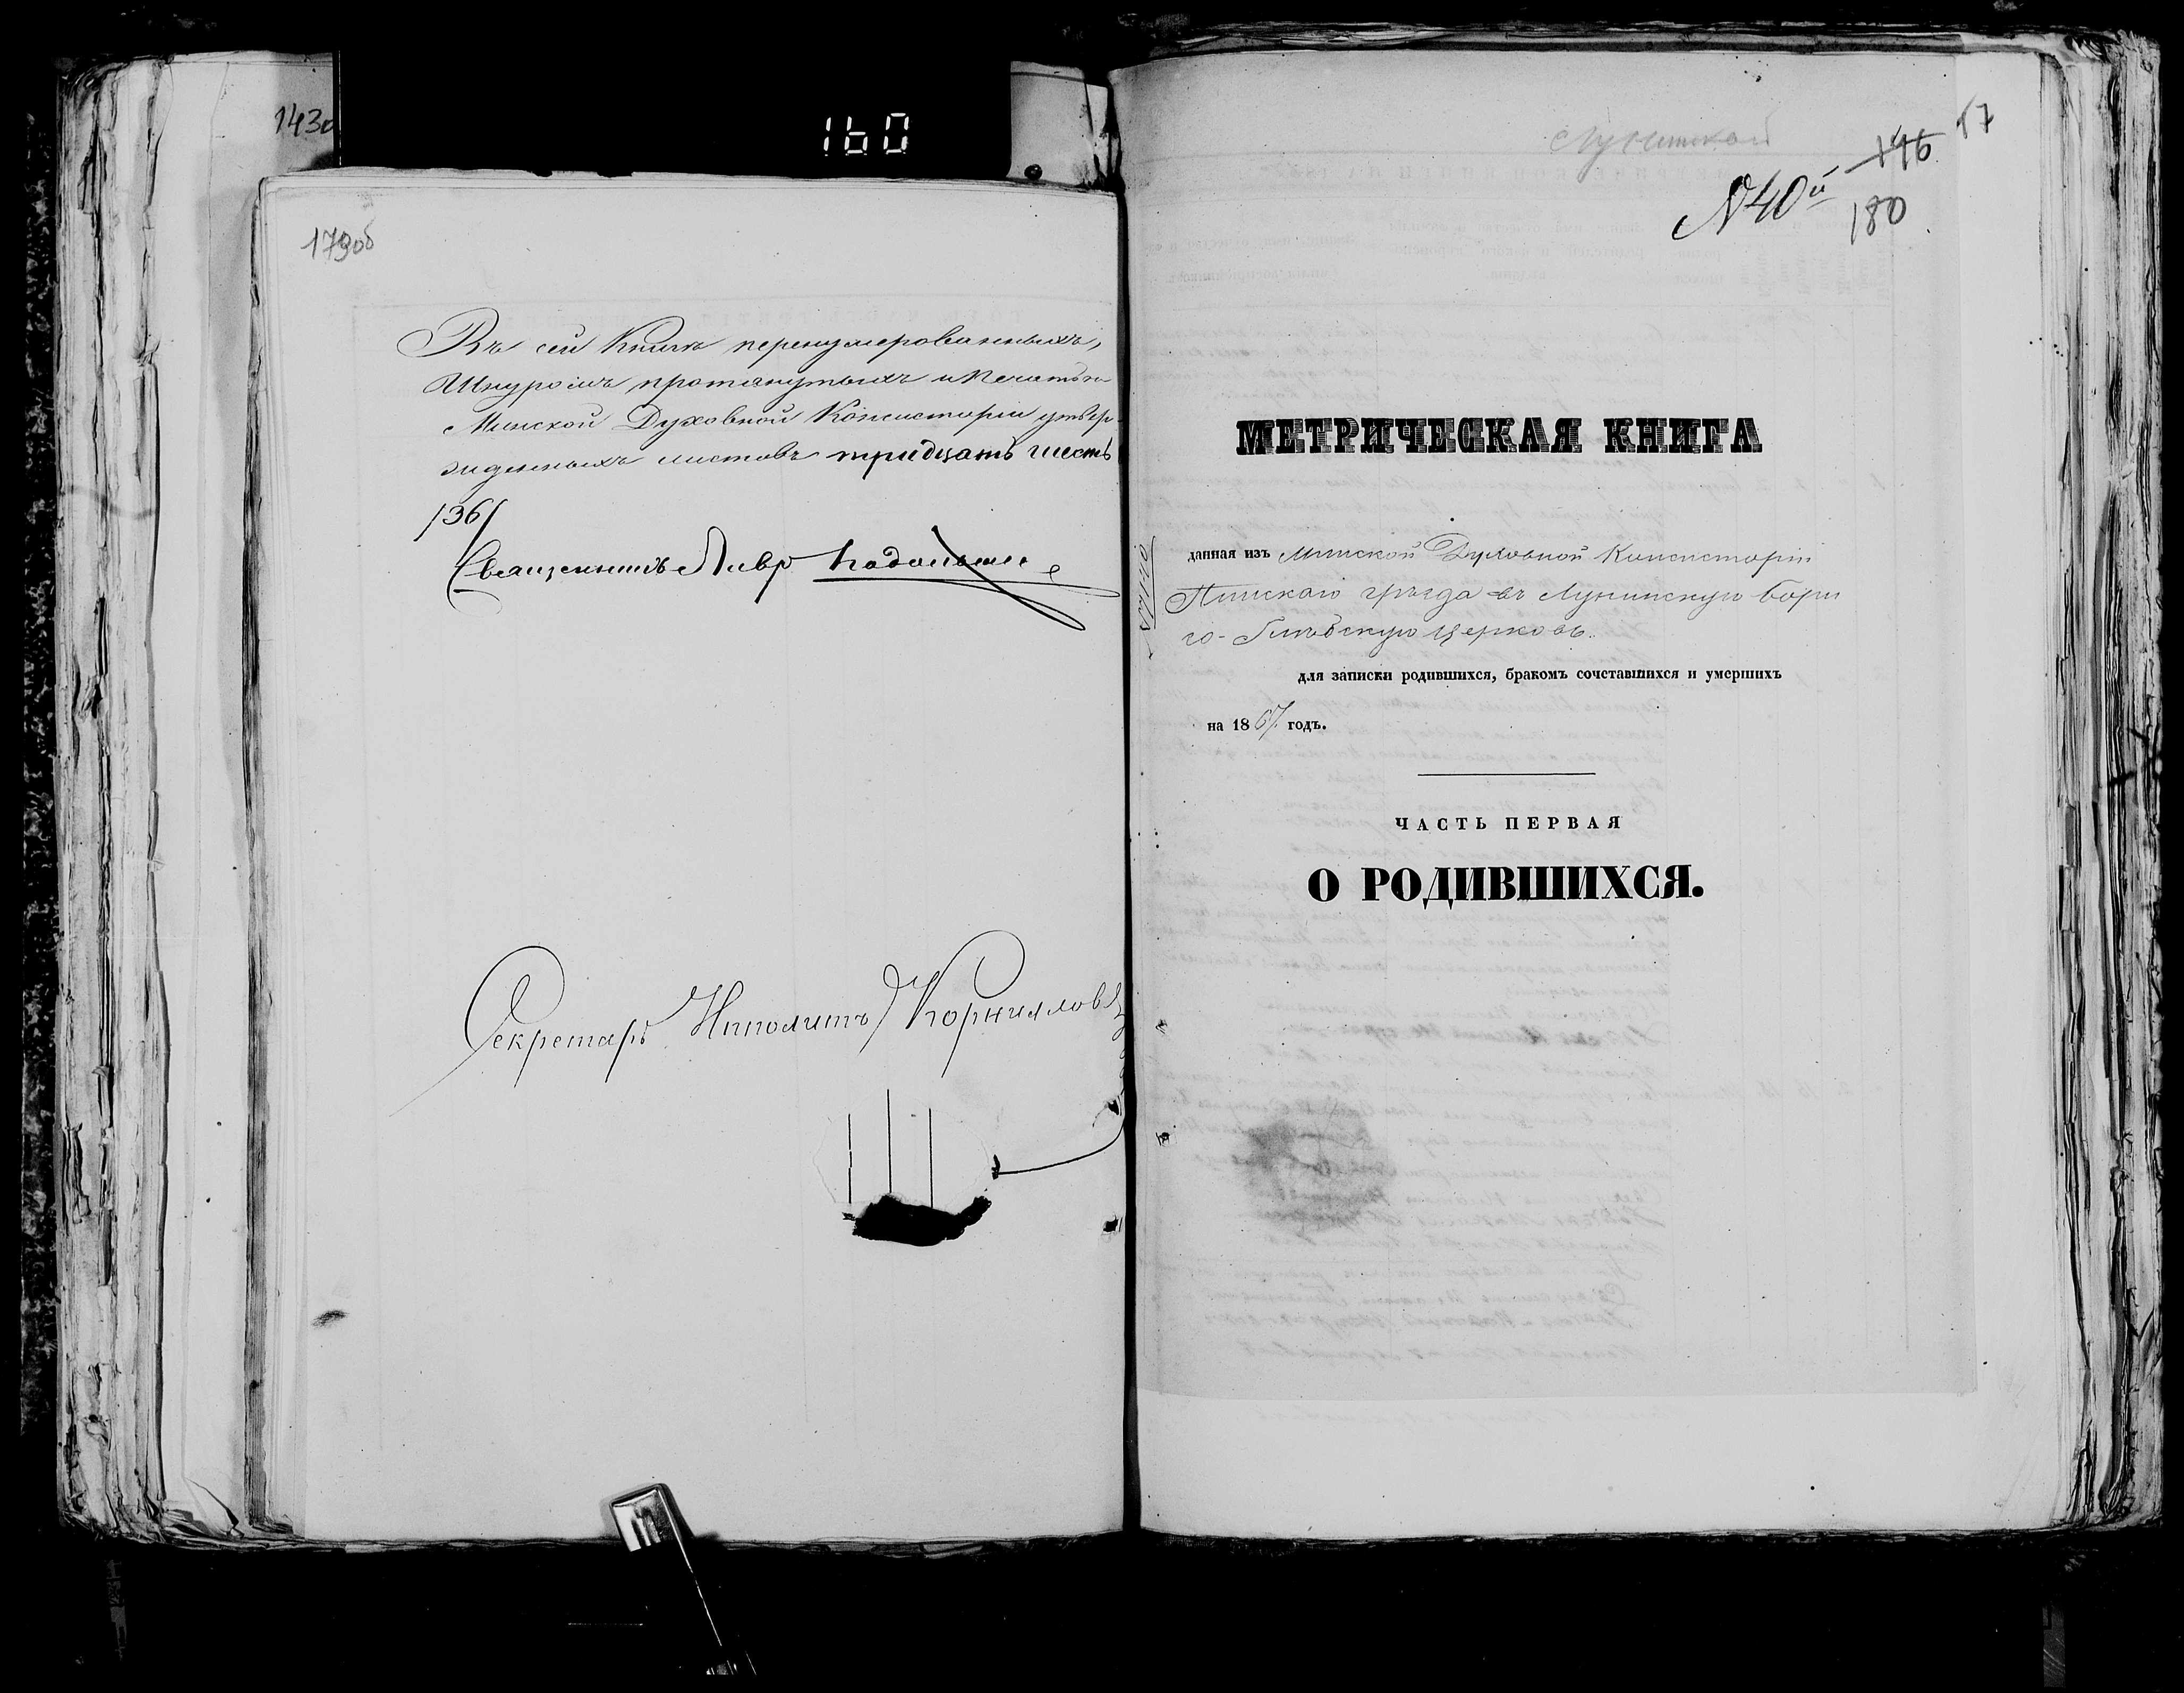 143об
160
179об
Въ сей Книгѣ перенумерованныхъ,
Шнуромъ протянутыхъ и печатью
Минской Духовной Консисторіи утвер-
жденныхъ листовъ тридцать шесть
/36/
Священникъ Лавр
Секретарь Ипполитъ Корнилов
Лунинской
N40й 146 67
180
МЕТРИЧЕСКАЯ КНИГА
данная изъ Минской Духовной Консисторіи
Пинскаго уѣзда въ Лунинскую Бори
со-Глѣбскую церковь.
для записки родившихся, бракомъ сочетавшихся и умершихъ
на 1867 годъ.
ЧАСТЬ ПЕРВАЯ
О РОДИВШИХСЯ.